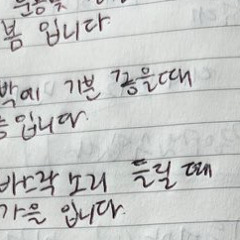 봄 입니다
밖에 기분 좋을때
입니다.
바스락 소리 들릴 때
가을 입니다.